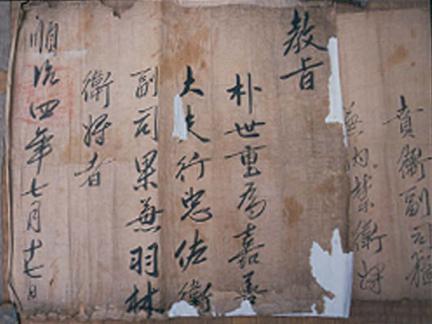 賁衛副司
兼內禁衛將
教旨
朴世重爲嘉善
大夫行忠佐衛
副司果兼羽林
衛將者
順治四年七月十七日